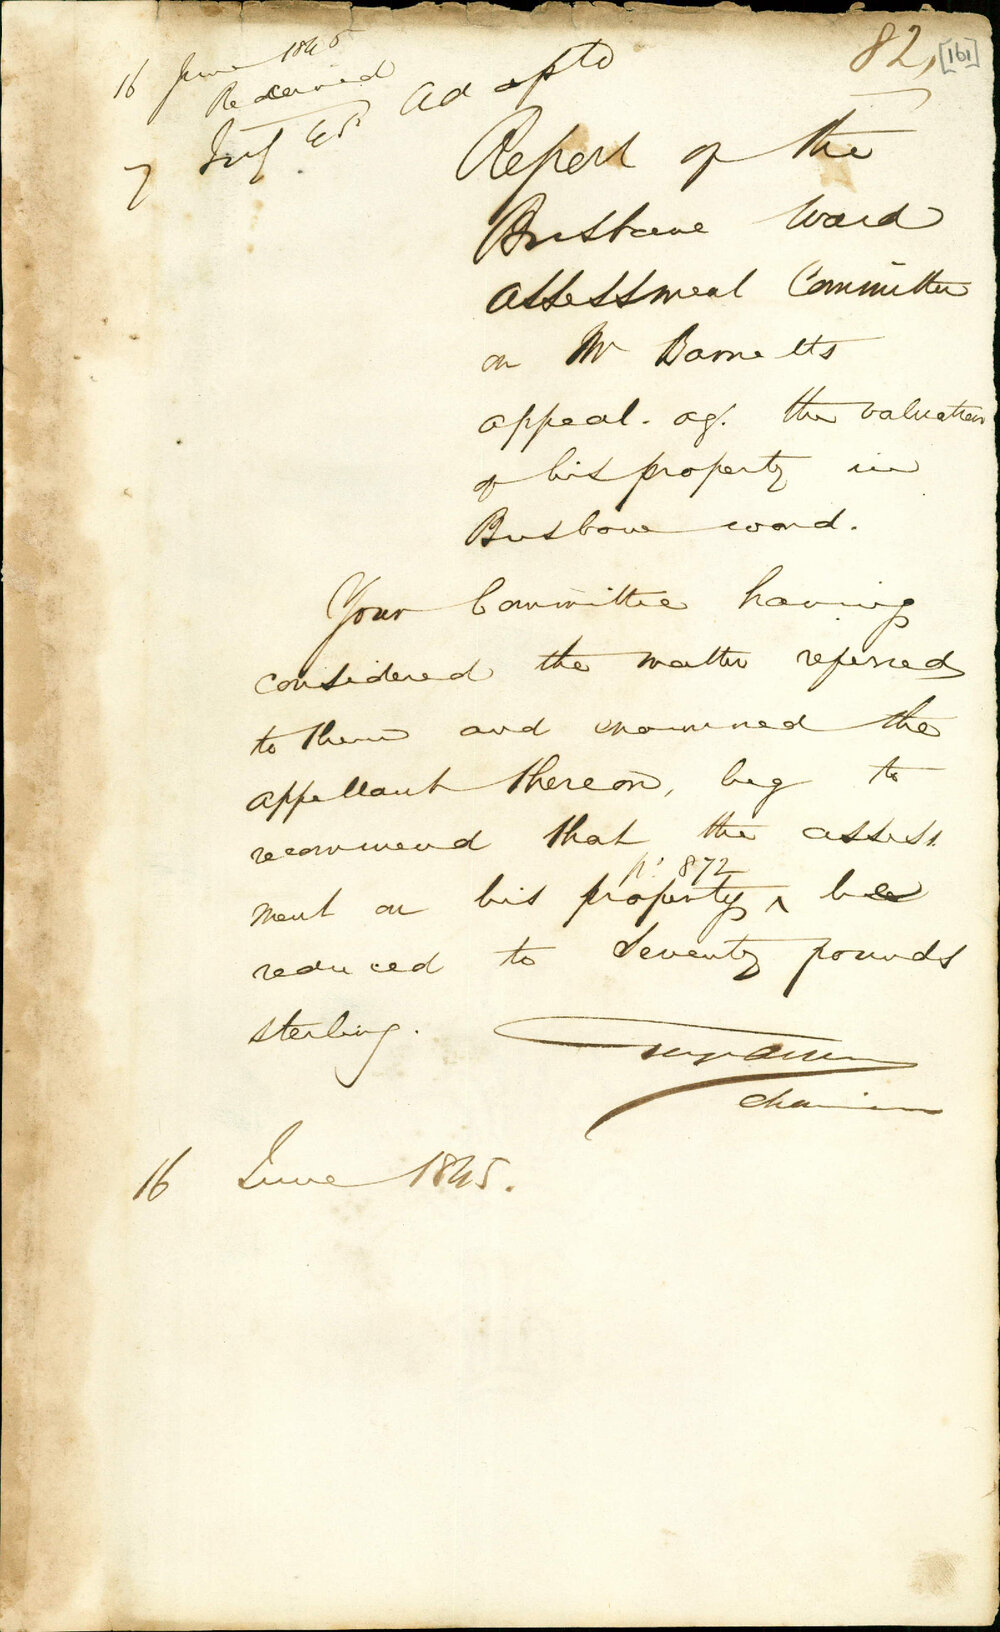 82, [161]
16 June 1845
Received
7 July 45 Adoptd
Report of the
Brisbane Ward
Assessment Committee
on Mr Barnetts
appeal. ag. the valuation
of his property in
Brisbane ward.
Your Committee having
considered the matter referred
to them and examined the
appellant thereon, beg to
recommend that the assess
ment on his property ^ be
no. 872
reduced to Seventy pounds
sterling.
Chairman
16 June 1845.